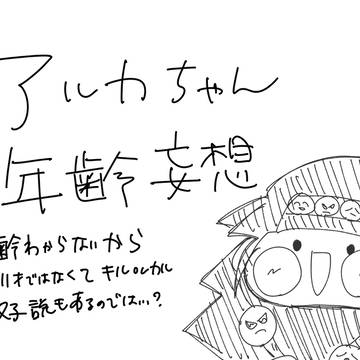 アルカちゃん
年齢妄想
齢わからないから
11才ではなくて キルorカル
双子説もあるのでは…?